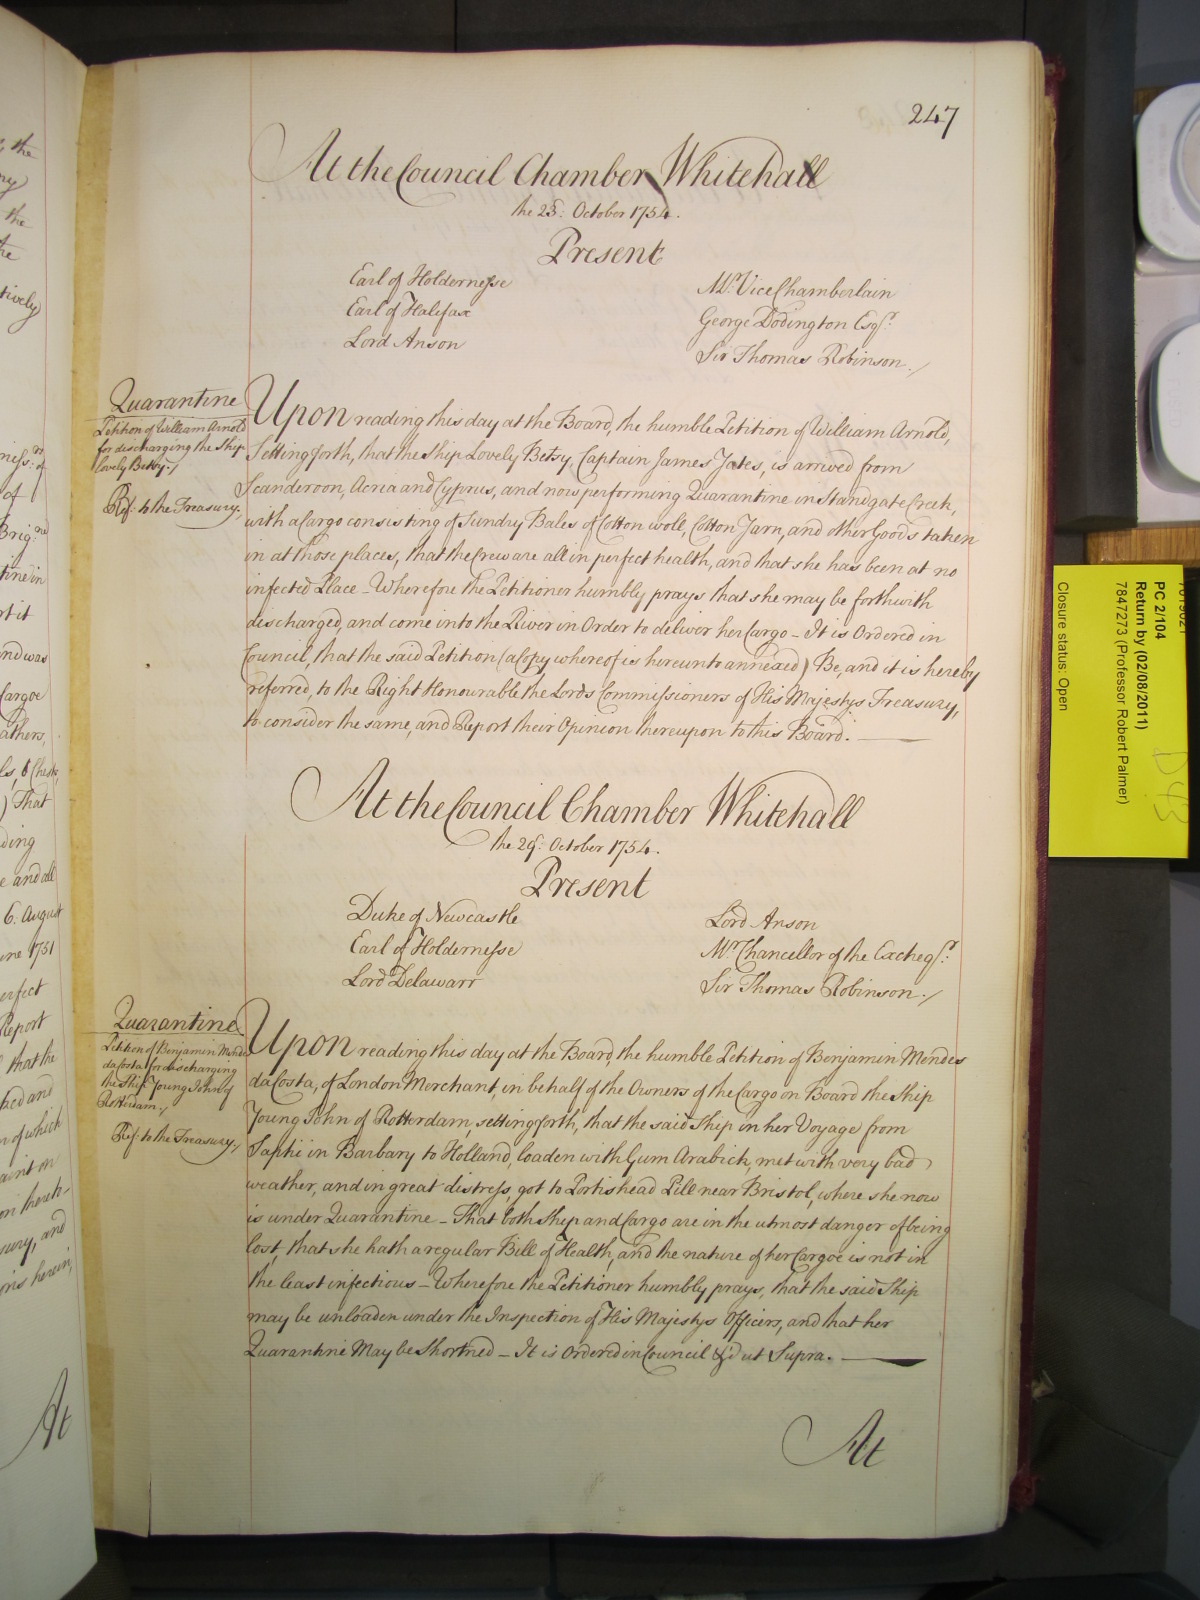 247
At the Council Chamber Whitehall
the 23d: October 1754.
Present
Earl of Holdernesse
Earl of Halifax
Lord Anson
Mr. Vice Chamberlain
George Dodington Esqr.
Sir Thomas Robinson.
Quarantine
Petition of William Arnold
for discharging the Ship
lovely Betsy.
Ref: to the Treasury.
Upon reading this day at the Board, the humble Petition of William Arnold,
Setting forth, that the Ship Lovely Betsy, Captain James Yates, is arrived from
Scanderoon, Acria and Cyprus, and now performing Quarantine in Standgate Creek,
with a Cargo consisting of Sundry Bales of Cotton woll, Cotton Yarn, and other Goods taken
in at those places, that the Crew are all in perfect health, and that she has been at no
infected Place - Wherefore the Petitioner humbly prays that she may be forthwith
discharged, and come into the River in Order to deliver her Cargo - It is Ordered in
Council, that the said Petition (a Copy whereof is hereunto annexed) Be, and it is hereby
referred, to the Right Honourable the Lords Commissioners of His Majestys Treasury,
to consider the same, and Report their Opinion thereupon to this Board.
At the Council Chamber Whitehall
the 29: October 1754.
Present
Duke of Newcastle
Earl of Holdernesse
Lord Delawarr
Lord Anson
Mr. Chancellor of the Excheqr.
Sir Thomas Robinson.
Quarantine
Petition of Benjamin Mendes
da Costa for discharging
the Ship Young John of
Rotterdam.
Ref: to the Treasury.
Upon reading this day at the Board, the humble Petition of Benjamin Mendes
da Costa, of London Merchant, in behalf of the Owners of the Cargo on Board the Ship
Young John of Rotterdam, setting forth, that the said Ship in her Voyage from
Saphi in Barbary to Holland, loaden with Gum Arabick, met with very bad
weather, and in great distress, got to Portishead Pill near Bristol, where she now
is under Quarantine - That both Ship and Cargo are in the utmost danger of being
lost, that she hath a regular Bill of Health, and the nature of her Cargoe is not in
the least infectious - Wherefore the Petitioner humbly prays, that the said Ship
may be unloaden under the Inspection of His Majestys Officers, and that her
Quarantine May be Shortned - It is Ordered in Council &c ut Supra.
At
the
the
of
and was
Cargoe
That
and all
6. August
June 1751
perfect
Report
that the
of which
and
herein,
At
PC 2/104
Return by (02/08/2011)
7847273 (Professor Robert Palmer)
Closure status: Open